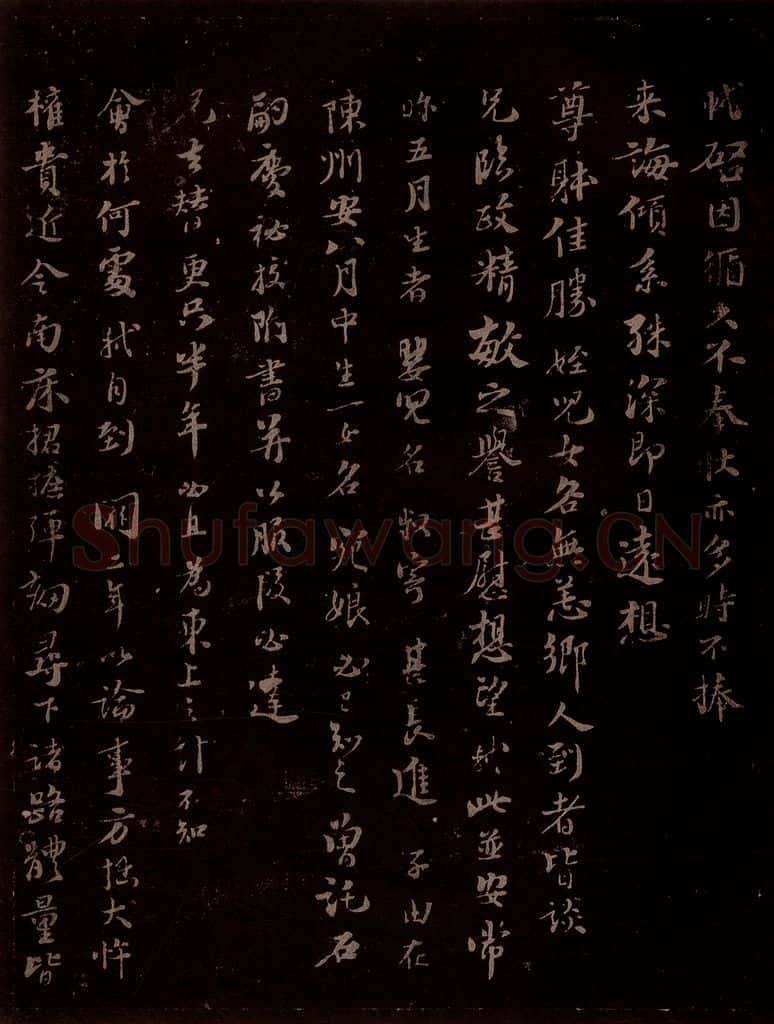 軾啓因循久不奉狀亦多時不捧
来誨傾系殊深即日遠想
尊躰佳勝姪児女各無恙鄉人到者皆談
兄臨政精敏之譽甚慰想望軾此並安常
昨五月生者嬰児名叔寄甚長進子由在
陳州安八月中生一女名宛娘必已知之曾託石
嗣慶祕校附書并以服段必達
兄去替更只半年必且為東上之計不知
會於何處軾自到闕二年以論事方拙大忤
權貴近令南床捃摭彈劾尋下諸路體量皆
Shufawang.CN